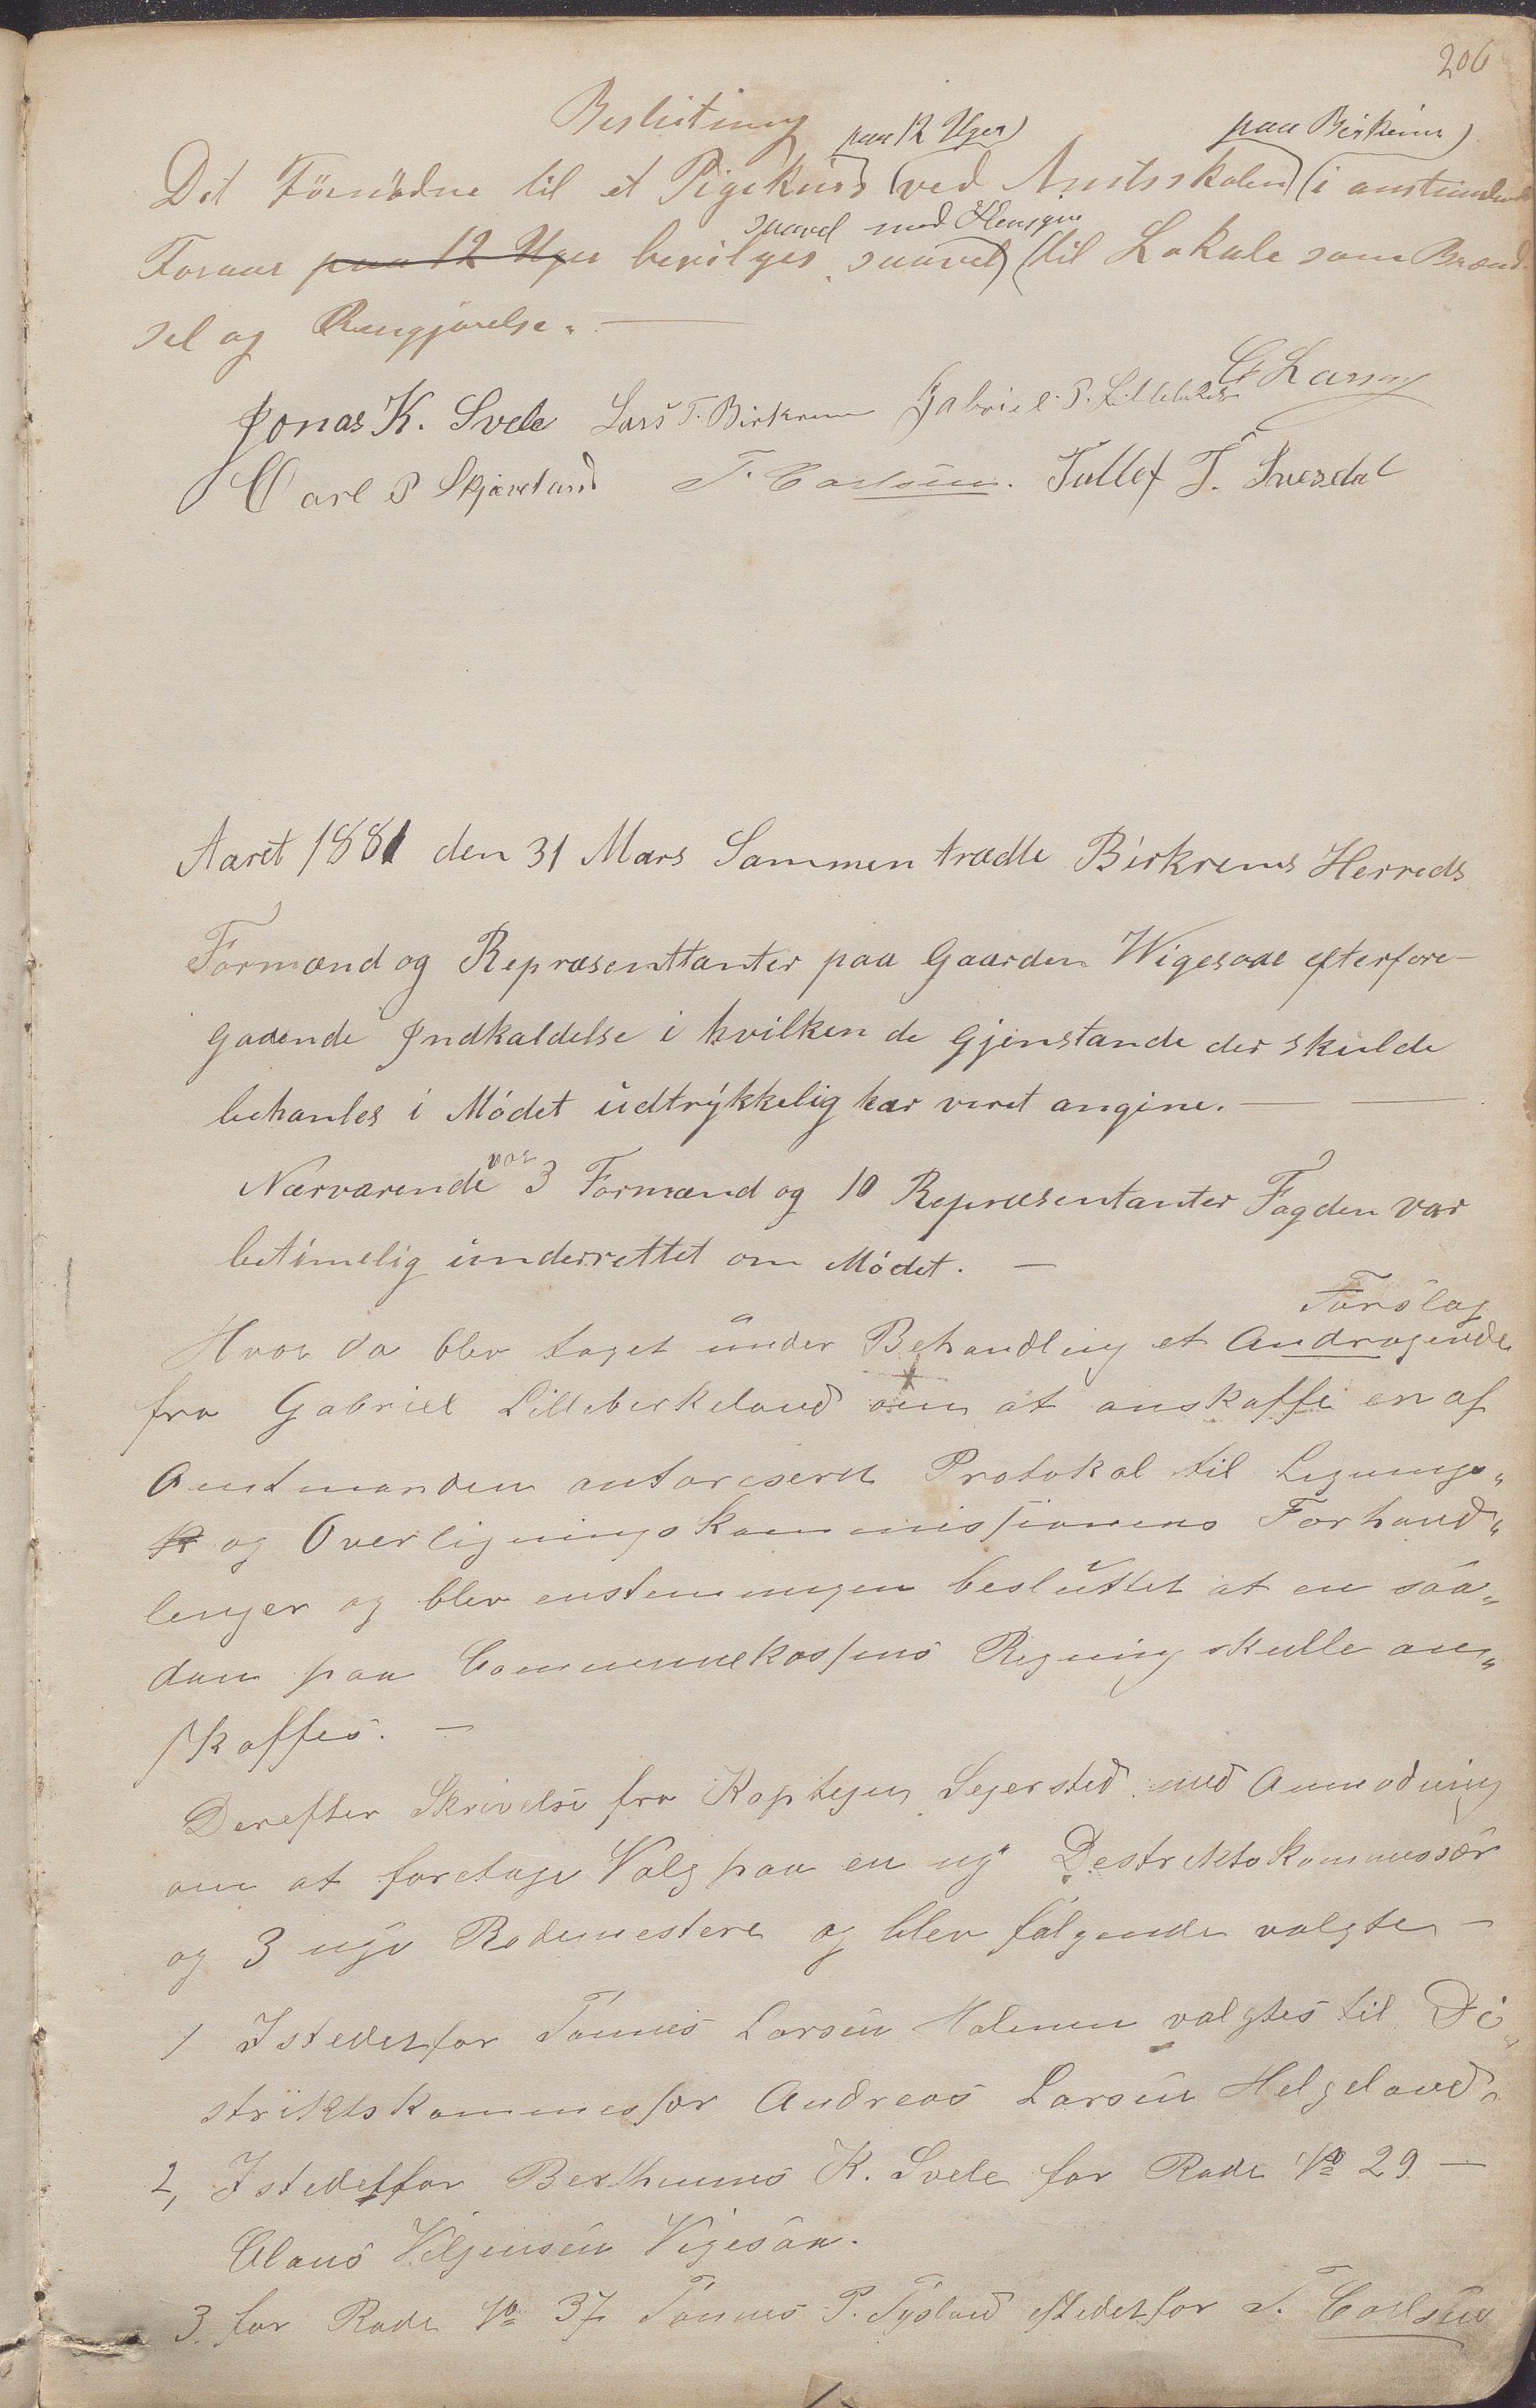 206
Beslutning
paa 12 Uger) paa Birkrem)
Det Fornödne til et Pigekurs (ved Amtsskolen) (i anstundende
saavel med Hensyn
Foraar paa 12 Uger bevilges saavel) (til Lokale som Brænd-
sel og Rengjörelse. —
Jonas K. Svele Lars T. Birkrem Gabriel P. Lillebirk
Carl P Skjæveland T. Carlsen. Tollef T. Svesdal
Aaret 1881 den 31 Mars Sammen trædte Birkrems Herreds
Formænd og Repræsenttanter paa Gaarden Wigesaae efterfore-
gaaende Indkaldelse i hvilken de Gjenstande der skulde
behanles i Mödet udtrykkelig har veret angine. —
Nærværende var 3 Formænd og 10 Repræsentanter Fogden var
betimelig underrettet om Mödet. —
Forslag
Hvor da blev taget under Behandling et Andragende
fra Gabriel Lilleberkeland om at anskaffe en af
Amtmanden autoriseret Protokol til Lignings„
og Overligningskommissionens Forhand„
linger og blev enstemmigen besluttet at en saa„
dan paa Communekassens Regning skulle an„
skaffes. —
Derefter Skrivelse fra Kaptejn Sejersted med Anmodning
om at foretage Valg paa en ny Destriktskommissær
og 3 nye Rodemestere og blev fölgende valgte —
1 Istedetfor Tönnes Larsen Malmem valgtes til Di„
striktskommessær Andreas Larsen Helgeland.
2, Istedetfor Berthunus K. Svele for Rode No 29 —
Claus Veljensen Vigesaa.
3. for Rode No 37 Tönnes P. Tysland istedetfor T. Carlsen